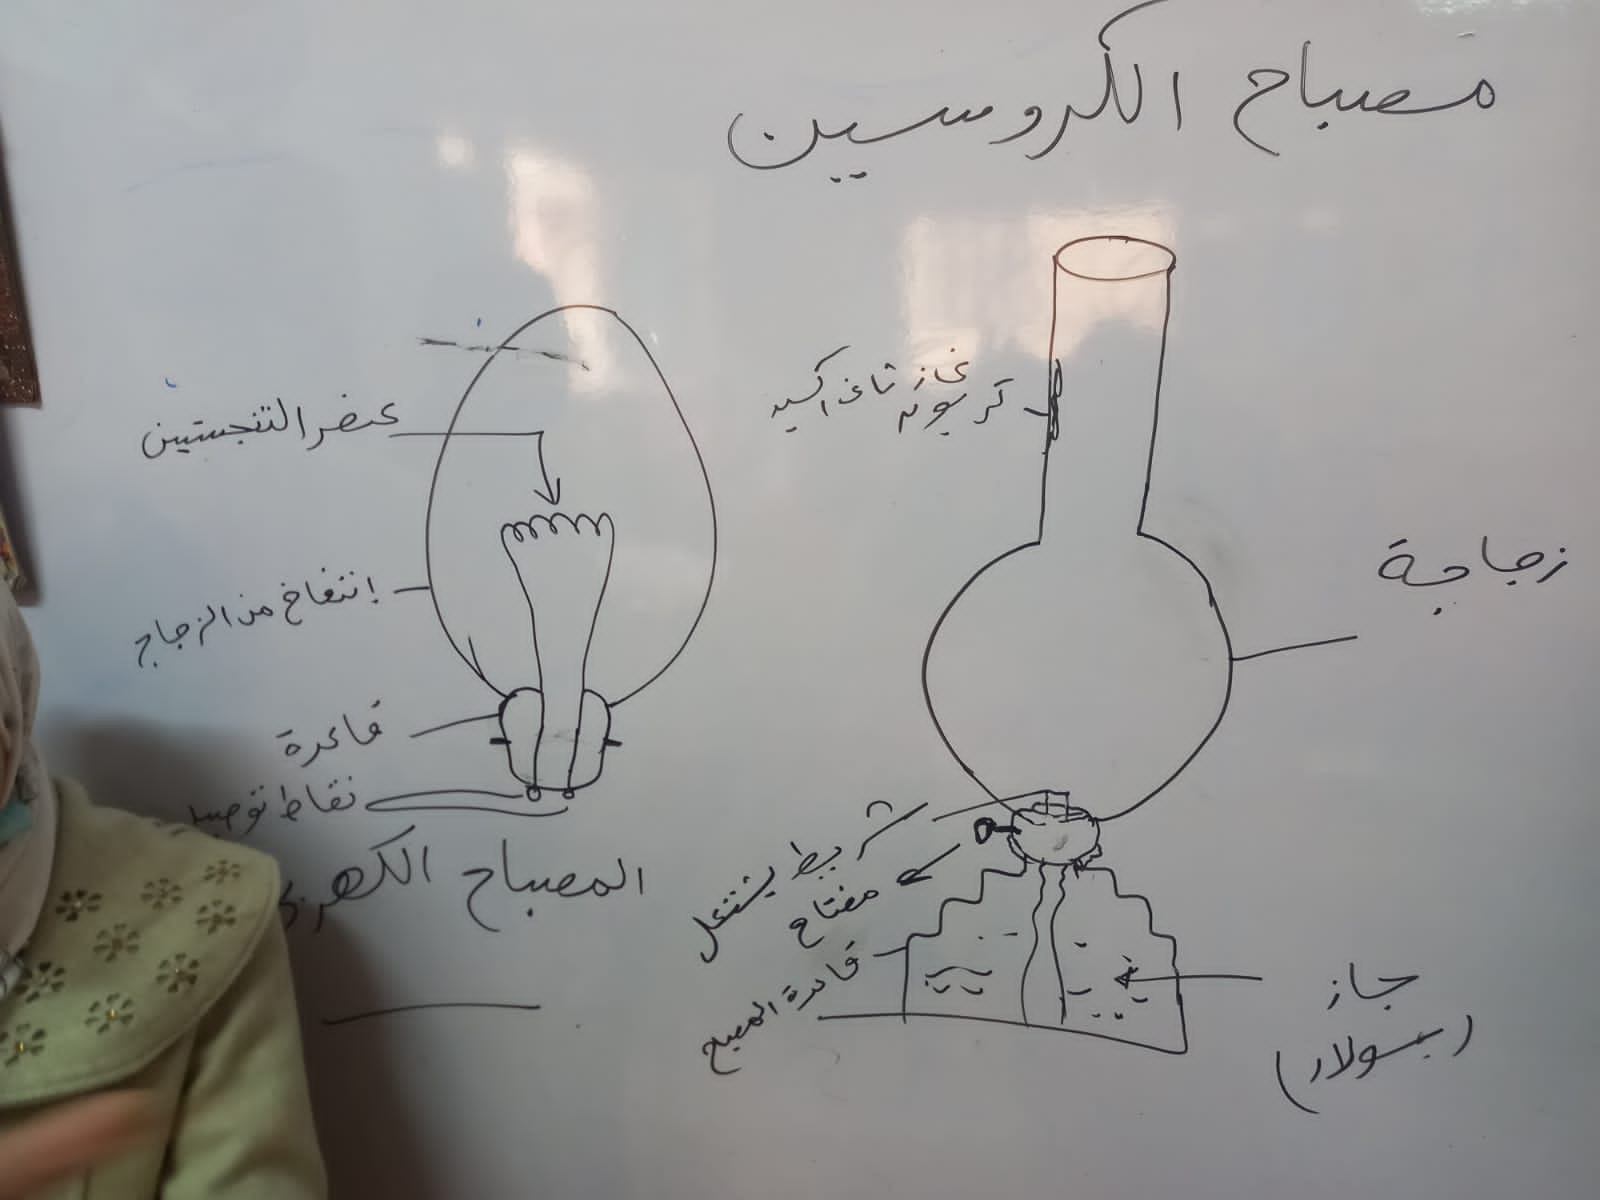 مصباح الكروسين
غاز ثاني اكسيد
كربون
زجاجة
شريط يشتعل
مفتاح
قاعدة المصبح
جاز
(سولار)
عنصر التنجستين
إنتفاخ من الزجاج
قاعدة
نقاط توصيل
المصباح الكهربي